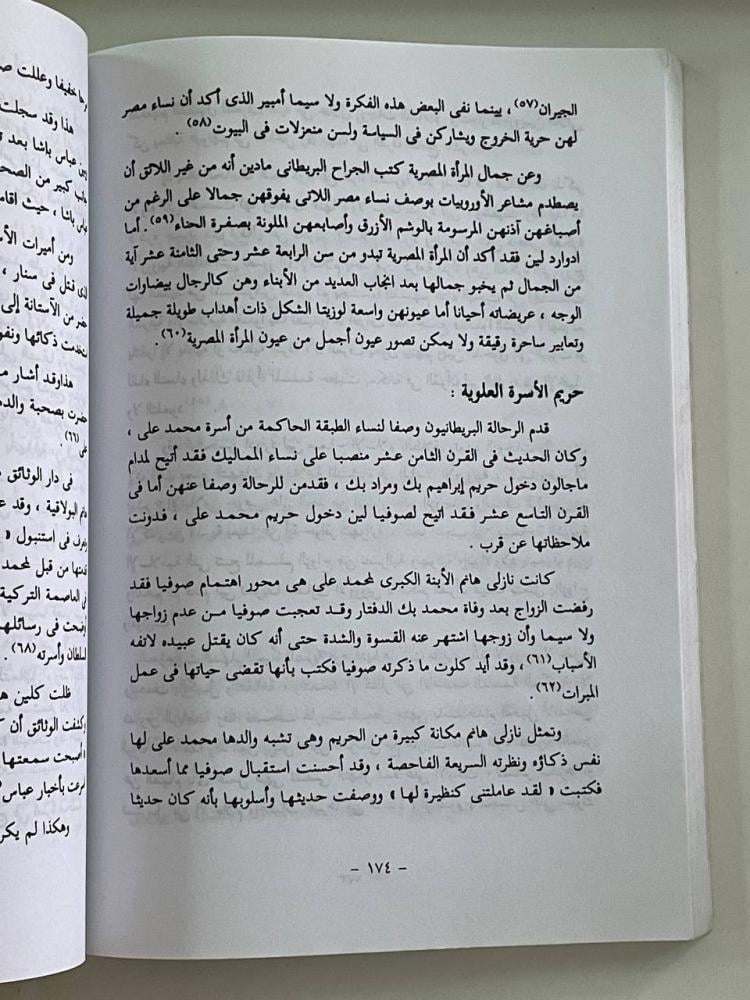 الجيران(٥٧) ، بينما نفى البعض هذه الفكرة ولا سيما أمبير الذى أكد أن نساء مصر
لهن حرية الخروج ويشاركن فى السياسة ولسن منعزلات فى البيوت(٥٨) .
وعن جمال المرأة المصرية كتب الجراح البريطانى مادين أنه من غير اللائق أن
يصطدم مشاعر الأوروبيات بوصف نساء مصر اللاتى يفوقهن جمالا على الرغم من
أصباغهن آذنهن المرسومة بالوشم الأزرق وأصابعهن الملونة بصفرة الحناء(٥٩) . أما
ادوارد لين فقد أكد أن المرأة المصرية تبدو من سن الرابعة عشر وحتى الثامنة عشر آية
من الجمال ثم يخبو جمالها بعد انجاب العديد من الأبناء وهن كالرجال بيضاوات
الوجه ، عريضاته أحيانا أما عيونهن واسعة لوزيتا الشكل ذات أهداب طويلة جميلة
وتعابير ساحرة رقيقة ولا يمكن تصور عيون أجمل من عيون المرأة المصرية(٦٠) .
حريم الأسرة العلوية :
قدم الرحالة البريطانيون وصفا لنساء الطبقة الحاكمة من أسرة محمد على ،
وكان الحديث فى القرن الثامن عشر منصبا على نساء المماليك فقد أتيح لمدام
ماجالون دخول حريم إبراهيم بك ومراد بك ، فقدمن للرحالة وصفا عنهن أما فى
القرن التاسع عشر فقد اتيح لصوفيا لين دخول حريم محمد على ، فدونت
ملاحظاتها عن قرب .
كانت نازلى هانم الأبنة الكبرى لمحمد على هى محور اهتمام صوفيا فقد
رفضت الزواج بعد وفاة محمد بك الدفتار وقد تعجبت صوفيا من عدم زواجها
ولا سيما وأن زوجها اشتهر عنه القسوة والشدة حتى أنه كان يقتل عبيده لاتفه
الأسباب(٦١) ، وقد أيد كلوت ما ذكرته صوفيا فكتب بأنها تقضى حياتها فى عمل
المبرات(٦٢) .
وتمثل نازلى هانم مكانة كبيرة من الحريم وهى تشبه والدها محمد على لها
نفس ذكاؤه ونظرته السريعة الفاحصة ، وقد أحسنت استقبال صوفيا مما أسعدها
فكتبت « لقد عاملتنى كنظيرة لها » ووصفت حديثها وأسلوبها بأنه كان حديثا
– ١٧٤ –
خفيفا وعللت
هذا وقد سجلت
عباس باشا بعد
كبير من الصحـ
باشا ، حيث اقا
ومن أميرات الأ
قتل فى سنار ،
من الآستانة إلى
ذكائها ونفو
هذا وقد أشار
بصحبة والد
(٦٦)
فى دار الوثائق
البولاقية ، وقد
فى استنبول «
من قبل لمحمد
العاصمة التركية
أوضحت فى رسائلها
السلطان وأسرته(٦٨) .
ظلت كلين
وكشفت الوثائق أن
أصبحت سمعتها
بأخبار عباس
وهكذا لم يكن